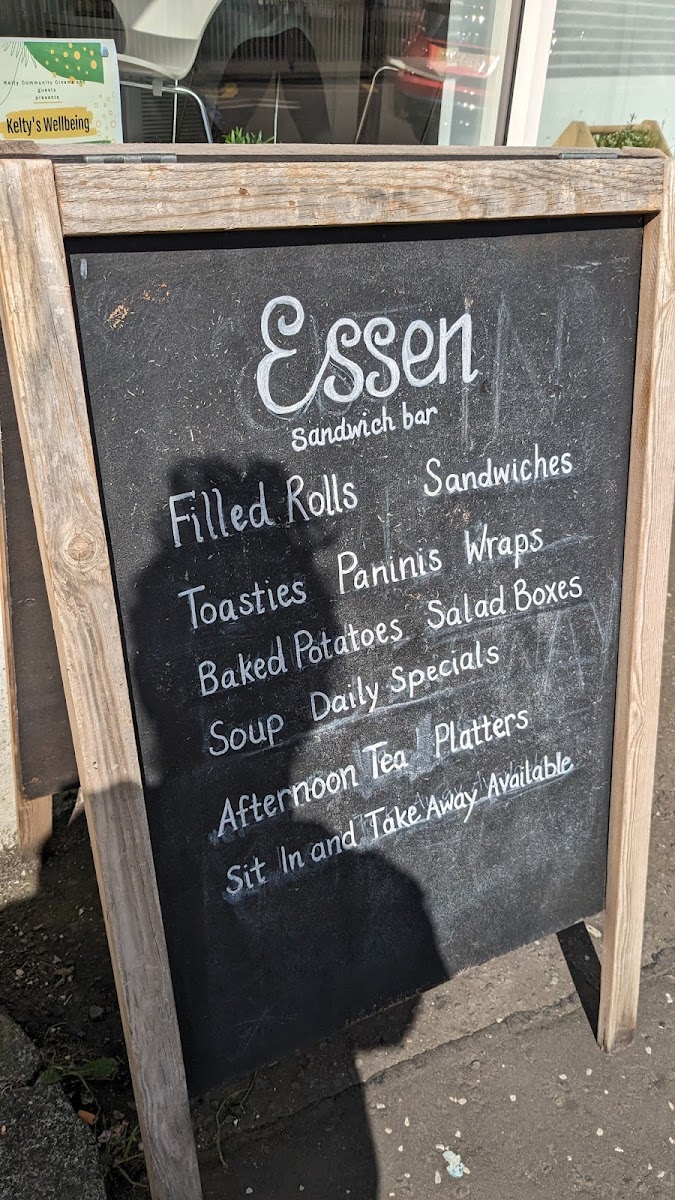 Kelty Community Cinema and
guests
presents
Kelty's Wellbeing
Essen
sandwich bar
Filled Rolls Sandwiches
Toasties Paninis Wraps
Baked Potatoes Salad Boxes
Soup Daily Specials
Afternoon Tea Platters
Sit In and Take Away Available